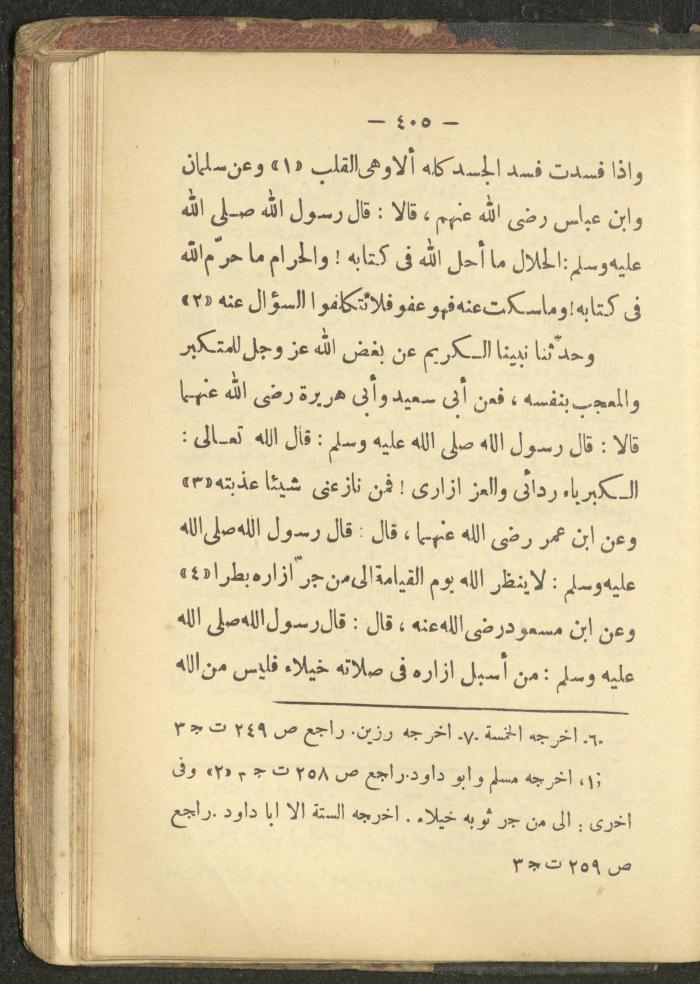 — ٤٠٥ —
واذا فسدت فسد الجسد كله ألا وهى القلب «١» وعن سلمان
وابن عباس رضى الله عنهم ، قالا : قال رسول الله صلى الله
عليه وسلم : الحلال ما أحل الله فى كتابه ! والحرام ما حرّم الله
فى كتابه ! وما سكت عنه فهو عفو فلا تتكلفوا السؤال عنه «٢»
وحدّثنا نبينا الكريم عن بغض الله عز وجل للمتكبر
والمعجب بنفسه ، فعن أبى سعيد وأبى هريرة رضى الله عنهما
قالا : قال رسول الله صلى الله عليه وسلم : قال الله تعالى :
الكبرياء ردائى والعز ازارى ! فمن نازعنى شيئا عذبته «٣»
وعن ابن عمر رضى الله عنهما ، قال : قال رسول الله صلى الله
عليه وسلم : لا ينظر الله يوم القيامة الى من جرّ ازاره بطرا «٤»
وعن ابن مسعود رضى الله عنه ، قال : قال رسول الله صلى الله
عليه وسلم : من أسبل ازاره فى صلاته خيلاء فليس من الله
-٦- اخرجه الخمسة -٧- اخرجه رزين. راجع ص ٢٤٩ ت ج ٣
«١» اخرجه مسلم وابو داود. راجع ص ٢٥٨ ت ج ٣ «٢» وفى
اخرى : الى من جر ثوبه خيلاء . اخرجه الستة الا ابا داود . راجع
ص ٢٥٩ ت ج ٣